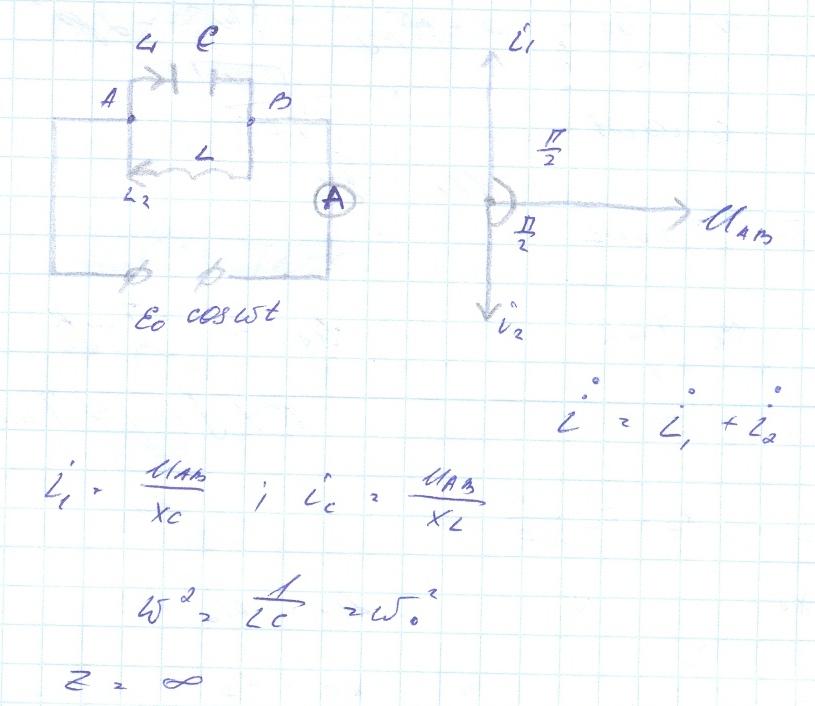 i₁ C
A B
L
i₂
A
ε₀ cos ωt
i₁
π/2
π/2
U_AB
i₂
i̇ = i̇₁ + i̇₂
i₁ = U_AB / X_C ; i_C = U_AB / X_L
ω² = 1 / LC = ω₀²
Z = ∞